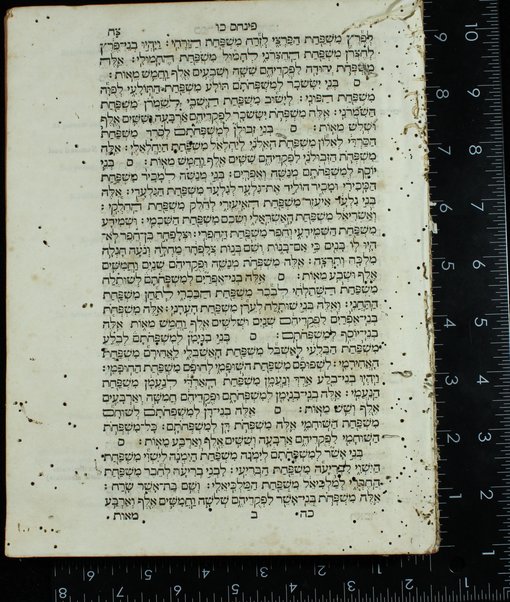 פינחס כו
צח
לפרץ משפחת הפרצי לזרח משפחת הזרחי: ויהיו בני־פרץ
לחצרן משפחת החצרני לחמול משפחת החמולי: אלה
משפחת יהודה לפקדיהם ששה ושבעים אלף וחמש מאות:
ס בני יששכר למשפחתם תולע משפחת התולעי לפוה
משפחת הפוני: לישוב משפחת הישבי לשמרן משפחת
השמרני: אלה משפחת יששכר לפקדיהם ארבעה וששים אלף
ושלש מאות: ס בני זבולן למשפחתם לסרד משפחת
הסרדי לאלון משפחת האלני ליחלאל משפחת היחלאלי: אלה
משפחת הזבולני לפקדיהם ששים אלף וחמש מאות: ס בני
יוסף למשפחתם מנשה ואפרים: בני מנשה למכיר משפחת
המכירי ומכיר הוליד את־גלעד לגלעד משפחת הגלעדי: אלה
בני גלעד איעזר משפחת האיעזרי לחלק משפחת החלקי:
ואשריאל משפחת האשראלי ושכם משפחת השכמי: ושמידע
משפחת השמידעי וחפר משפחת החפרי: וצלפחד בן־חפר לא־
היו לו בנים כי אם־בנות ושם בנות צלפחד מחלה ונעה חגלה
מלכה ותרצה: אלה משפחת מנשה ופקדיהם שנים וחמשים
אלף ושבע מאות: ס אלה בני־אפרים למשפחתם לשותלח
משפחת השתלחי לבכר משפחת הבכרי לתחן משפחת
התחני: ואלה בני שותלח לערן משפחת הערני: אלה משפחת
בני־אפרים לפקדיהם שנים ושלשים אלף וחמש מאות אלה
בני־יוסף למשפחתם: ס בני בנימן למשפחתם לבלע
משפחת הבלעי לאשבל משפחת האשבלי לאחירם משפחת
האחירמי: לשפופם משפחת השופמי לחופם משפחת החופמי:
ויהיו בני־בלע ארד ונעמן משפחת הארדי לנעמן משפחת
הנעמי: אלה בני־בנימן למשפחתם ופקדיהם חמשה וארבעים
אלף ושש מאות: ס אלה בני־דן למשפחתם לשוחם
משפחת השוחמי אלה משפחת דן למשפחתם: כל־משפחת
השוחמי לפקדיהם ארבעה וששים אלף וארבע מאות: ס
בני אשר למשפחתם לימנה משפחת הימנה לישוי משפחת
הישוי לבריעה משפחת הבריעי: לבני בריעה לחבר משפחת
החברי למלכיאל משפחת המלכיאלי: ושם בת־אשר שרח:
אלה משפחת בני־אשר לפקדיהם שלשה וחמשים אלף וארבע
מאות
ב
כה